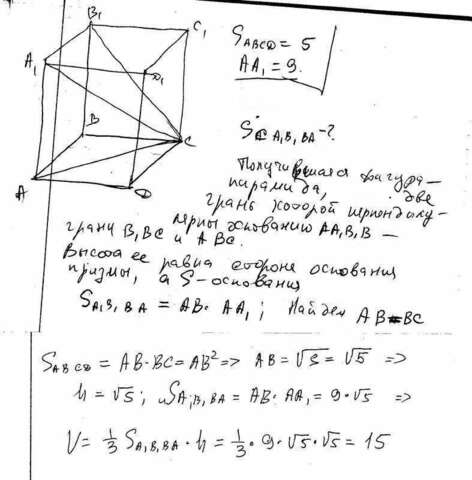 B₁
C₁
A₁
D₁
B
C
A
D
S ABCD = 5
AA₁ = 9
S C A₁B₁BA - ?
Получившаяся фигура -
пирамида, две
грань которой перпендику-
лярны основанию AA₁B₁B -
грани B₁BC и ABC.
Высота ее равна стороне основания
призмы, а S - основания
S A₁B₁BA = AB · AA₁; Найдем AB = BC
S ABCD = AB · BC = AB² => AB = √S = √5 =>
h = √5; S A₁B₁BA = AB · AA₁ = 9 · √5 =>
V = 1/3 S A₁B₁BA · h = 1/3 · 9 · √5 · √5 = 15